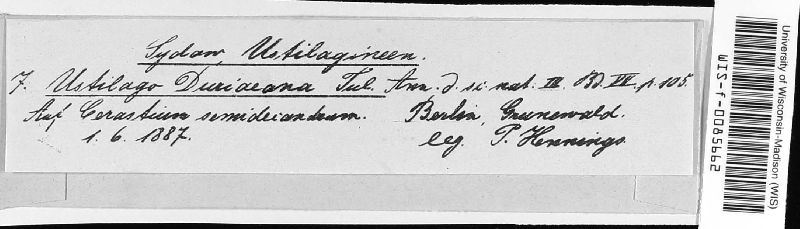 Sydow, Ustilagineen.
7. Ustilago Duriaeana Tul. Ann. d. sc. nat. III. Bd. VII. p. 105.
Auf Cerastium semidecandrum. Berlin, Grunewald.
1. 6. 1887. leg. P. Hennings
University of Wisconsin-Madison (WIS)
WIS-f-0085662